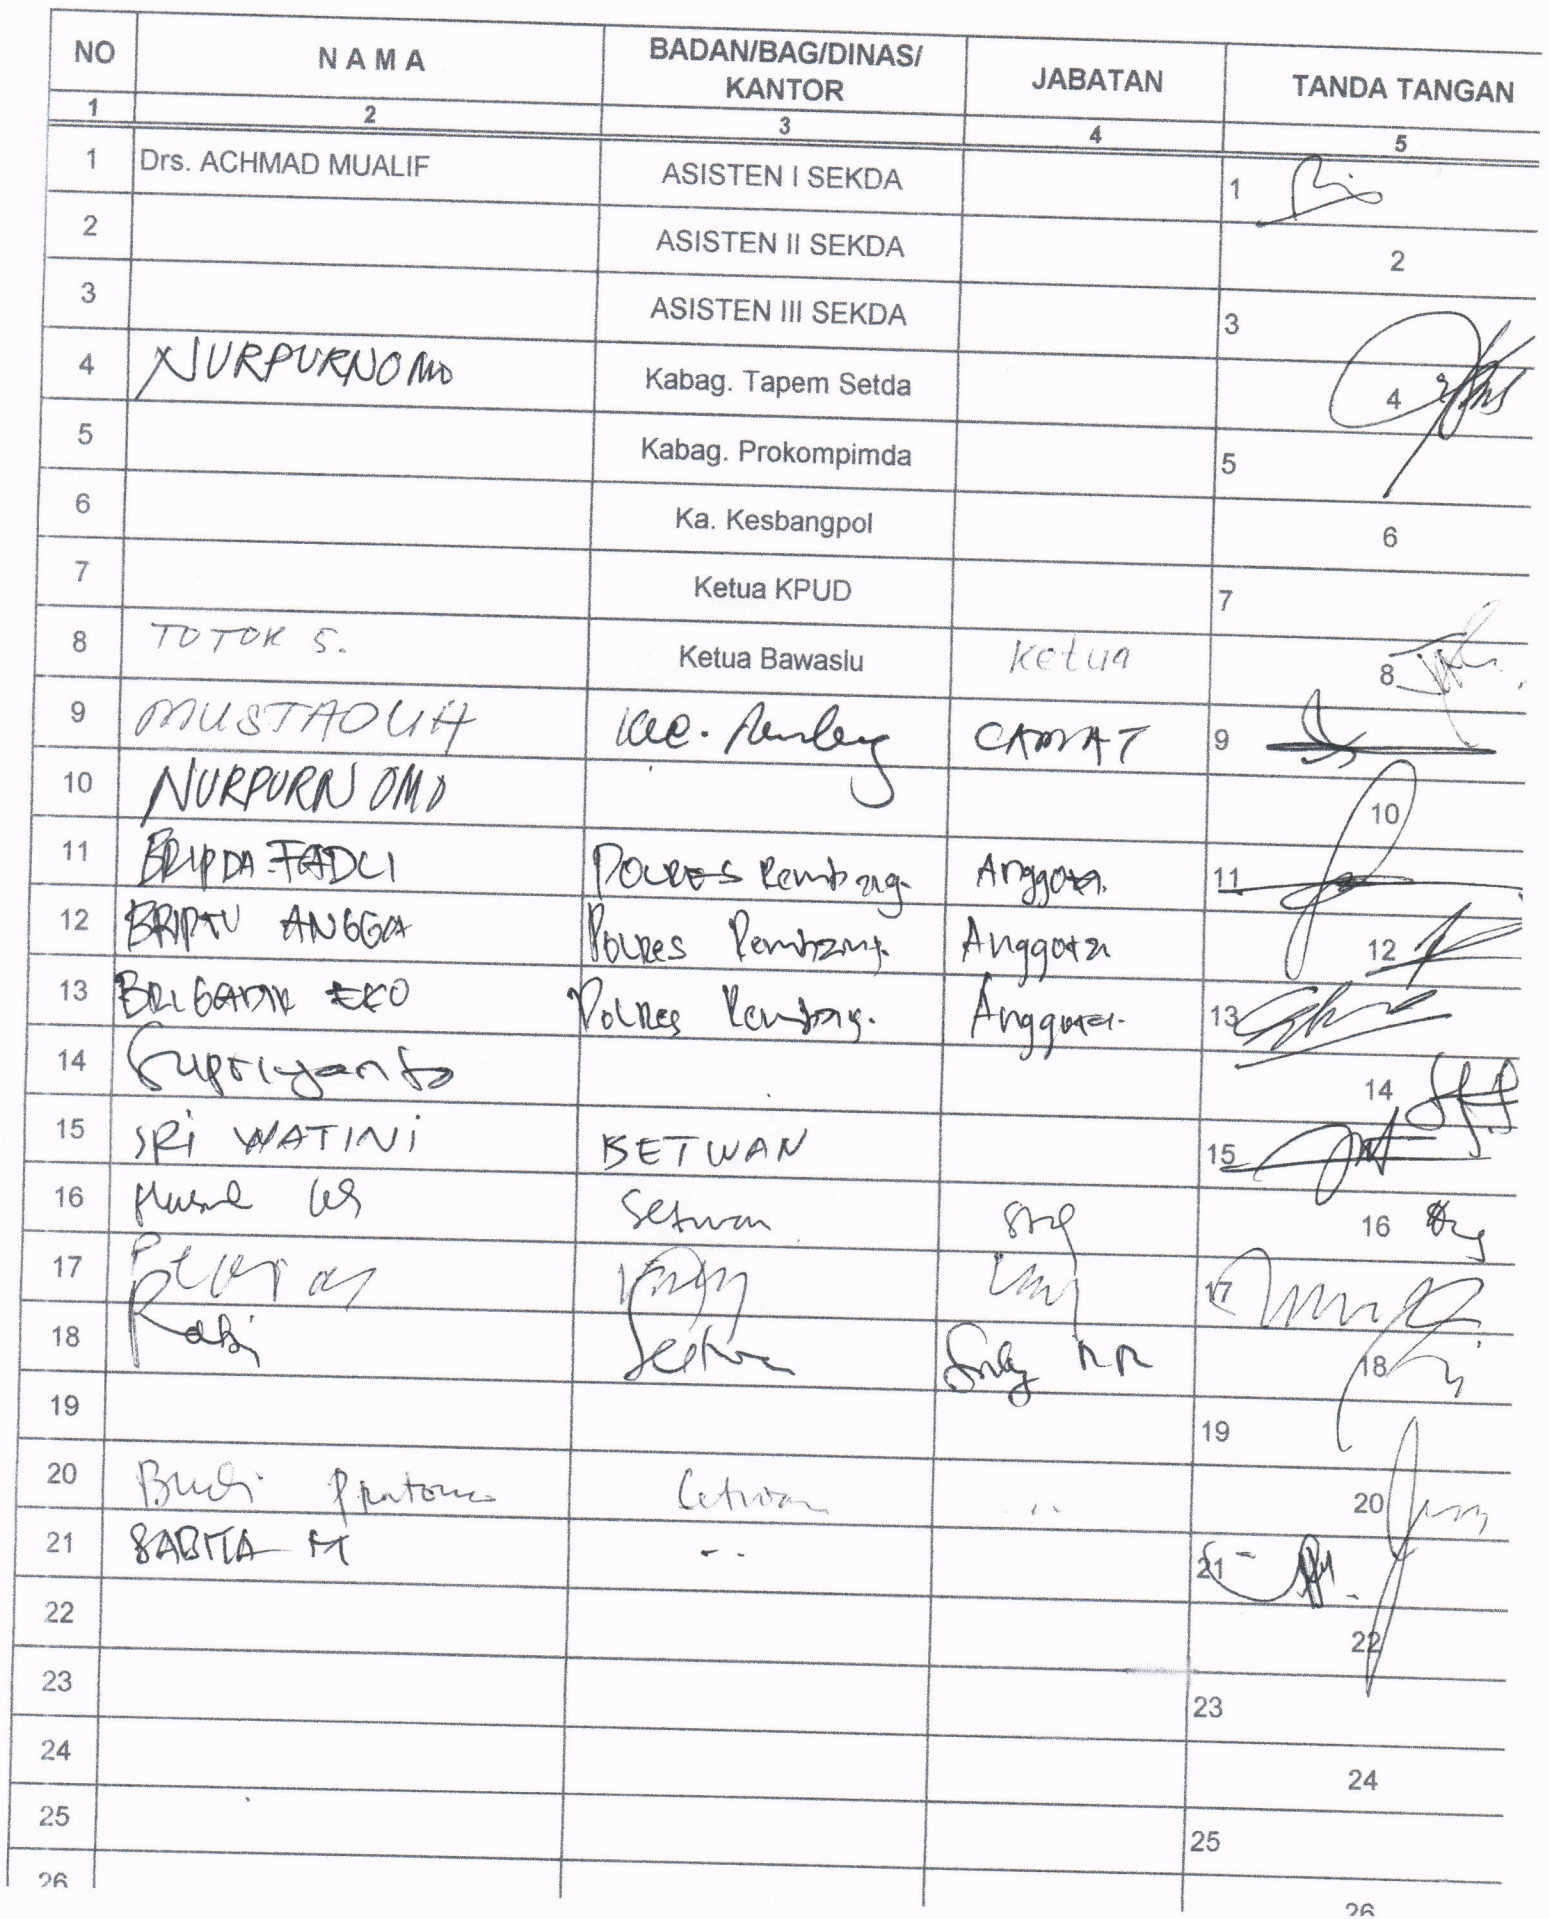 NO NAMA BADAN/BAG/DINAS/ JABATAN TANDA TANGAN
KANTOR
1 2 3 4 5
1 Drs. ACHMAD MUALIF ASISTEN I SEKDA 1
2 ASISTEN II SEKDA 2
3 ASISTEN III SEKDA 3
4 NURPURNOMO Kabag. Tapem Setda 4
5 Kabag. Prokompimda 5
6 Ka. Kesbangpol 6
7 Ketua KPUD 7
8 TOTOK S. Ketua Bawaslu Ketua 8
9 CAMAT 9
10 NURPURNOMO 10
11 BRIPDA FADLI POLRES Rembang. Anggota. 11
12 BRIPTU ANGGA POLRES Rembang. Anggota 12
13 BRIGADIR EKO POLRES Rembang. Anggota. 13
14 Supriyanto 14
15 SRI WATINI SETWAN 15
16 Setwan 16
17 17
18 Setwan 18
19 19
20 Budi Setwan 20
21 SABITA M 21
22 22
23 23
24 24
25 25
26 26